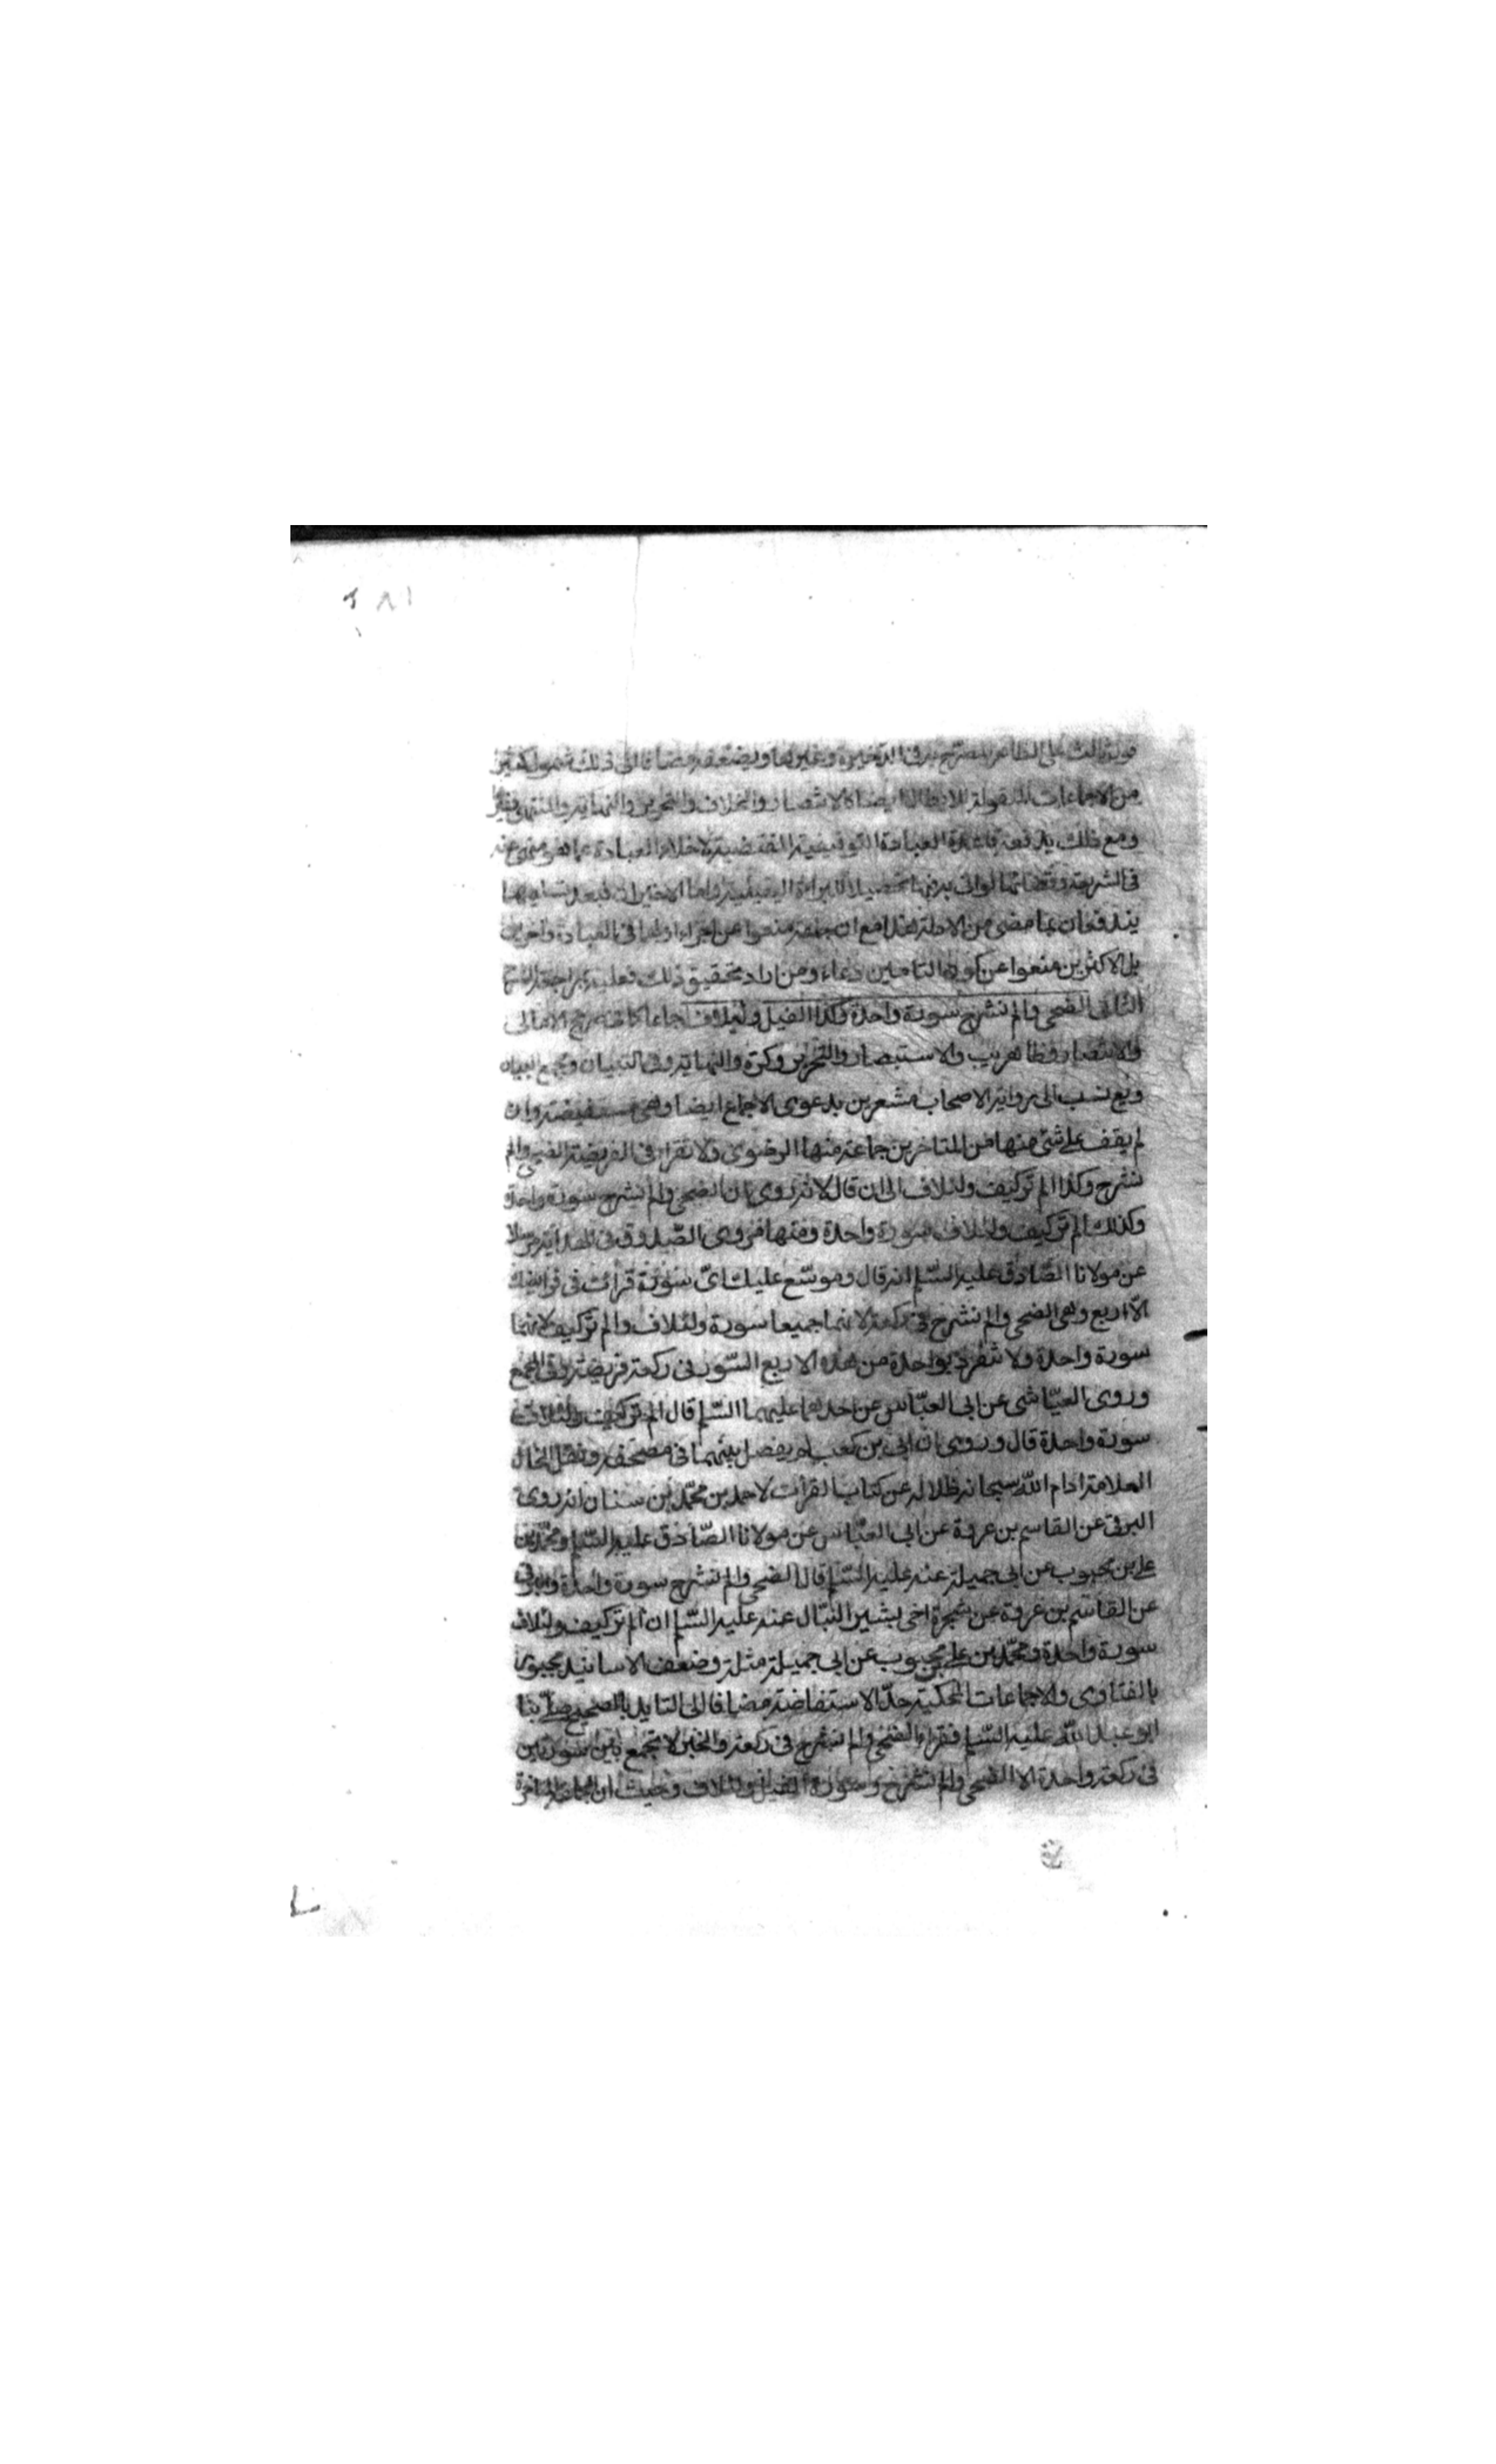 ٢٨١
قول ثالث على الظاهر المصرح به في الذخيرة وغيرها ويضعفه مضافا الى ذلك شمول كثير
من الاجماعات المنقولة للابطال ايضا كالانتصار والخلاف والتحرير والنهاية والمنتهى
ومع ذلك يدفعه قاعدة العبادة التوقيفية المقتضية لاخلاء العبادة عما هو منهى عنه
في الشريعة وقضائها لو اتى به فيها تحصيلا للبراءة اليقينية واما الاخيران فبعد تسليمهما
يندفعان بما مضى من الادلة هذا مع ان جماعة منعوا عن اجزاء الدعا في العبادة واخرين
بل الاكثرين منعوا عن كون التامين دعاء ومن اراد تحقيق ذلك فعليه بمراجعة
الثانى الضحى والم نشرح سورة واحدة وكذا الفيل ولئيلاف اجماعا كما في صريح الامالى
والانتصار وظاهر يب والاستبصار والتحرير وكرة والنهاية وفي التبيان ومجمع البيان
ويع نسب الى رواية الاصحاب مشعرين بدعوى الاجماع ايضا وهى مستفيضة وان
لم يقف على شئ منها من المتاخرين جماعة منها الرضوى ولا تقرا في الفريضة الضحى والم
نشرح وكذا الم تركيف ولئلاف الى ان قال لانه روى ان الضحى والم نشرح سورة واحدة
وكذلك الم تركيف ولئلاف سورة واحدة ومنها مروى الصدوق في الهداية مرسلا
عن مولانا الصادق عليه السلم انه قال وموسّع عليك اىّ سورة قرات في فرايضك
الّا اربع وهى الضحى والم نشرح في ركعة لانهما جميعا سورة ولئلاف والم تركيف لانهما
سورة واحدة ولا تنفرد بواحدة من هذه الاربع السّور في ركعة فريضة وفي المجمع
وروى العيّاشى عن ابى العبّاس عن احدهما عليهما السّلم قال الم تركيف ولئلاف
سورة واحدة قال وروى ان ابى بن كعب لم يفصل بينهما في مصحفه ونقل الخال
العلامة ادام اللّه سبحانه ظلاله عن كتاب القرات لاحمد بن محمّد بن سنان انه روى
البرقى عن القاسم بن عروة عن ابى العبّاس عن مولانا الصّادق عليه السّلم ومحمّد بن
على بن محبوب عن ابى جميلة عنه عليه السّلم قال الضحى والم نشرح سورة واحدة والبرقى
عن القاسم بن عروة عن شجرة اخى بشير النبّال عنه عليه السّلم ان الم تركيف ولئلاف
سورة واحدة ومحمّد بن على بن محبوب عن ابى جميلة مثله وضعف الاسانيد مجبور
بالفتاوى والاجماعات المحكية حدّ الاستفاضة مضافا الى التايد بالصحيح صلّى بنا
ابو عبد اللّه عليه السّلم فقراء الضحى والم نشرح في ركعة والخبر لا تجمع بين سورتين
في ركعة واحدة الا الضحى والم نشرح وسورة الفيل ولئلاف وحيث ان